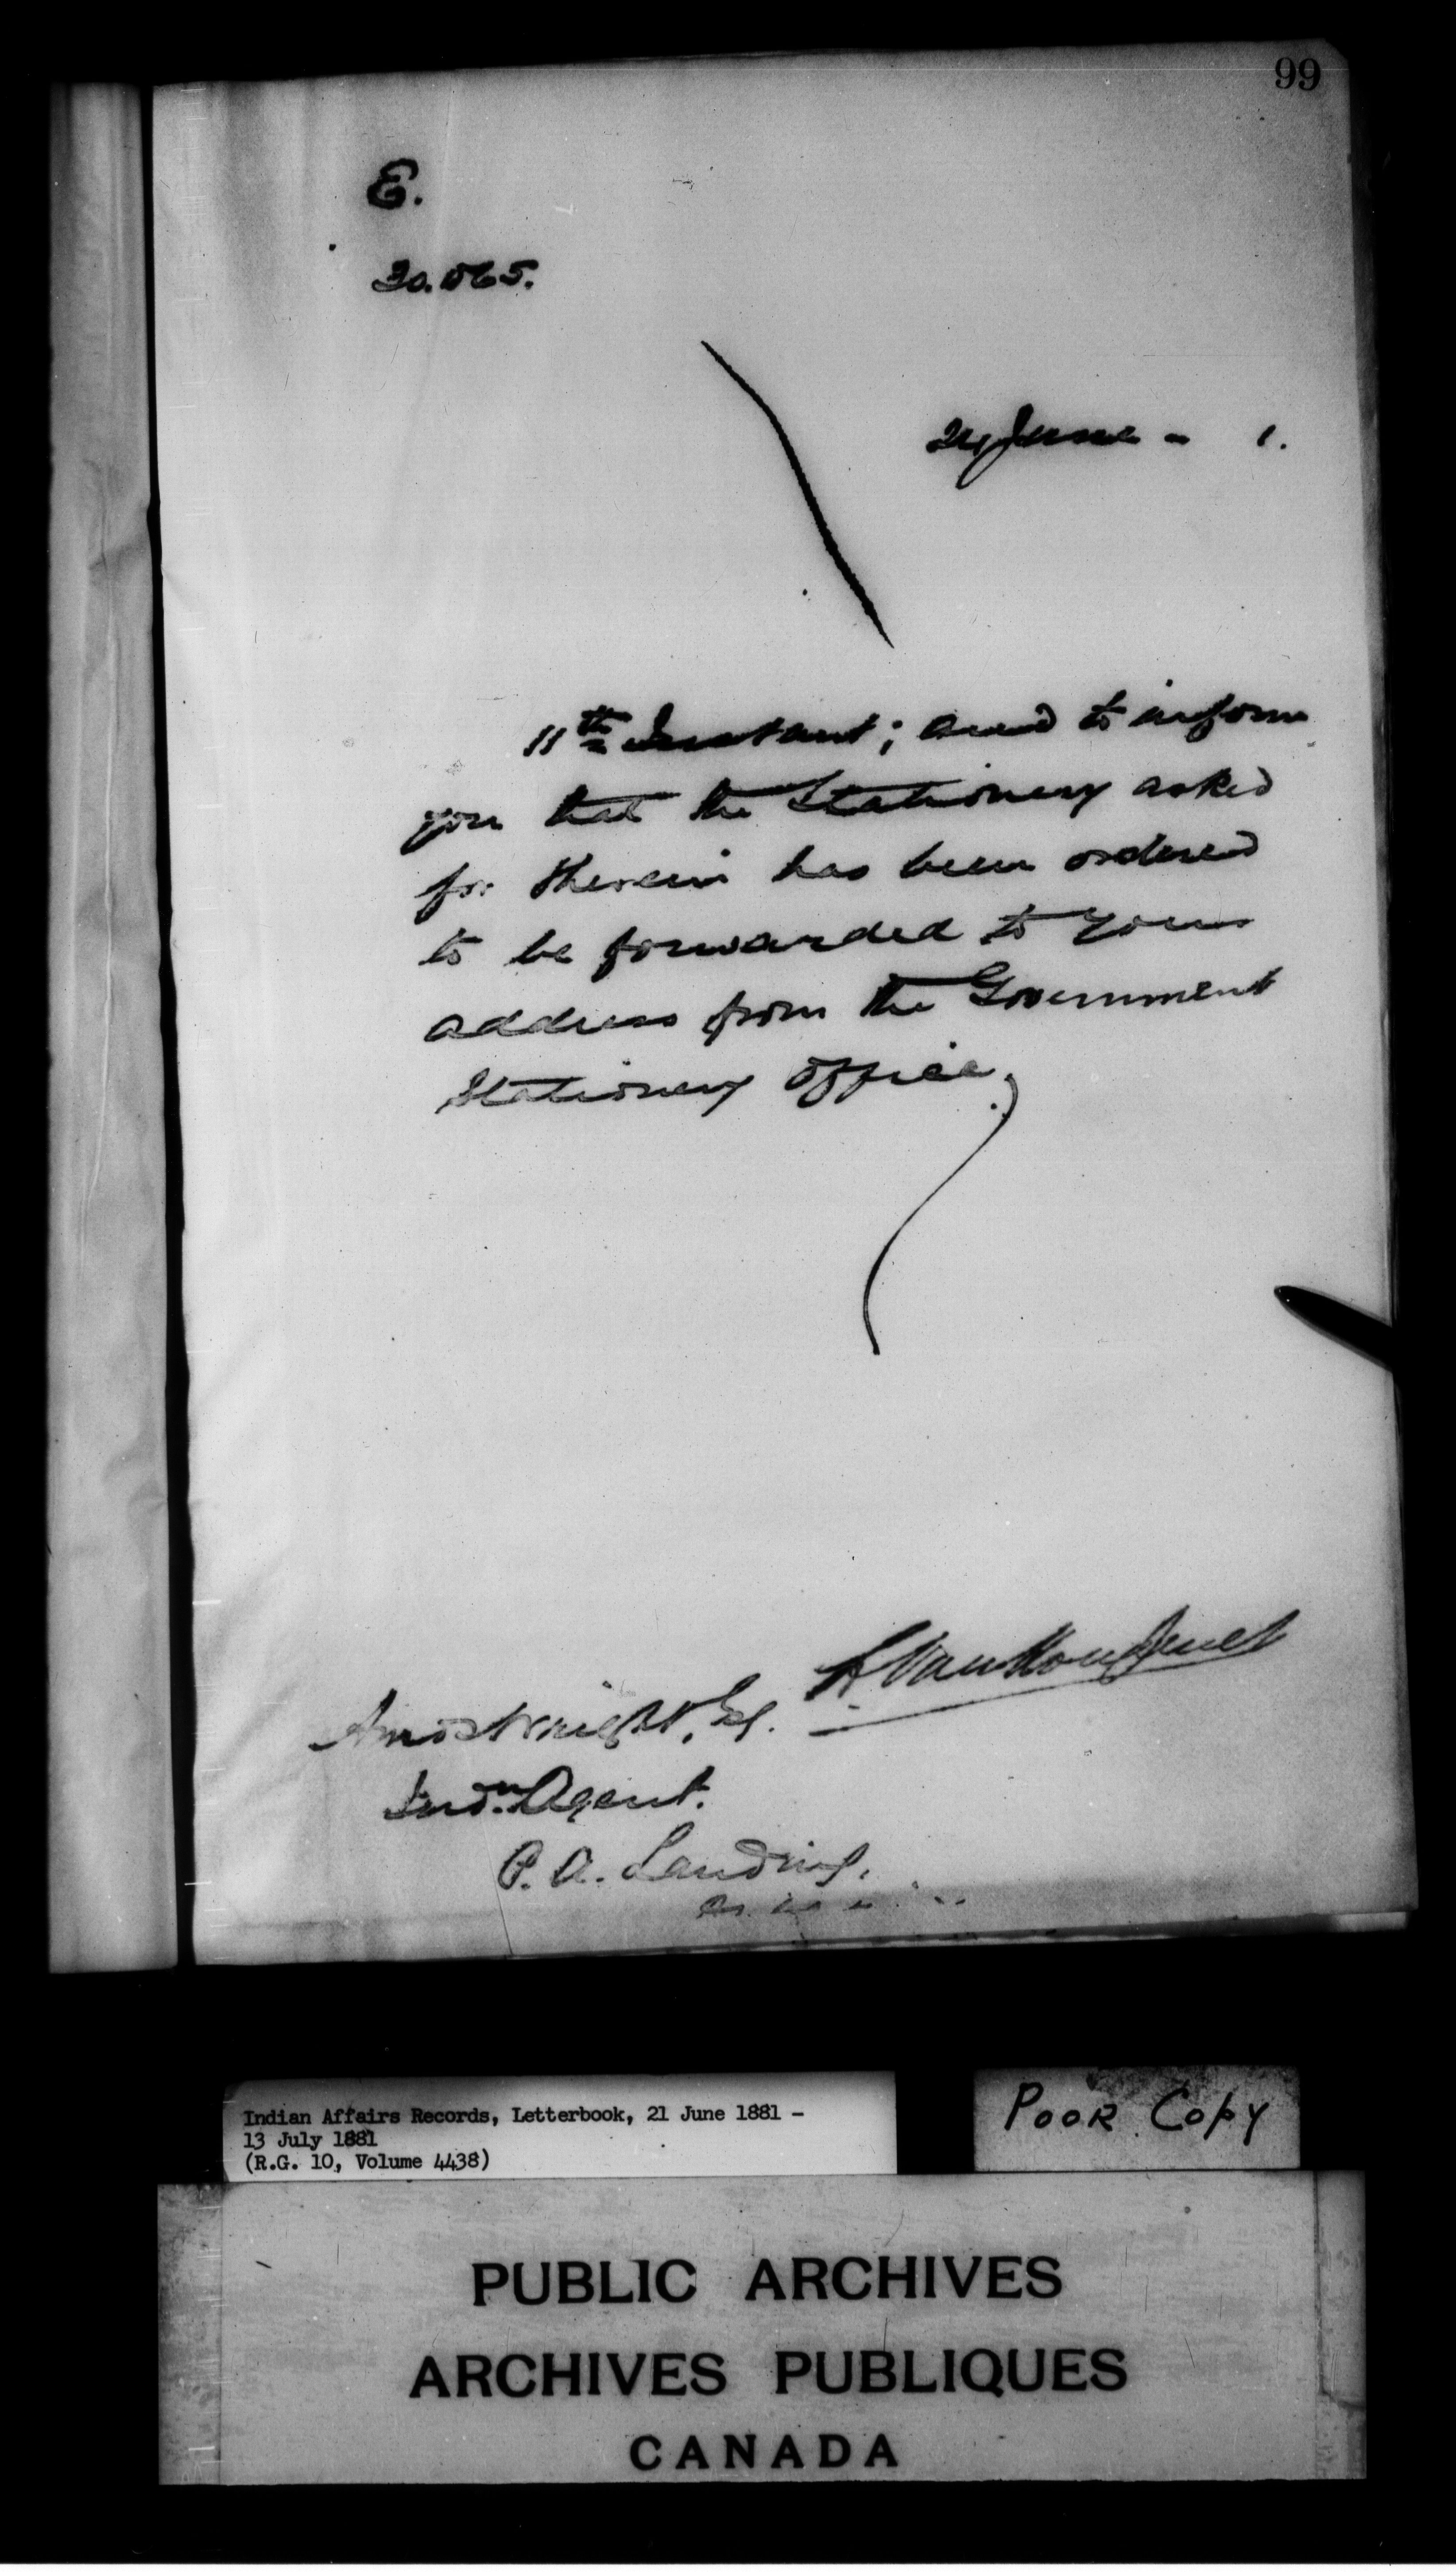 99
E.
30.065.
24 June - 1.
11th Instant; and to inform
you that the Stationery asked
for therein has been ordered
to be forwarded to your
address from the Government
Stationery Office.
L. VanKoughnet
Amos Wright, Esq.
Indn. Agent.
P. A. Landing,
Indian Affairs Records, Letterbook, 21 June 1881 -
13 July 1881
(R.G. 10, Volume 4438)
POOR COPY
PUBLIC ARCHIVES
ARCHIVES PUBLIQUES
CANADA